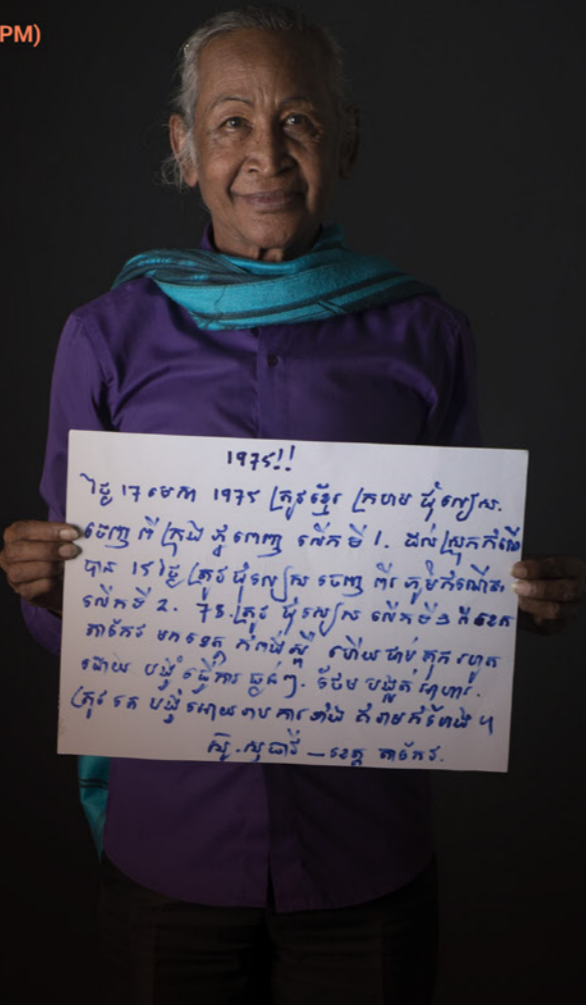 PM)
1975!!
ថ្ងៃ 17 មេសា 1975 ត្រូវខ្មែរ ក្រហម ជំលៀស.
ចេញ ពី ក្រុង ភ្នំពេញ លើកទី 1. ដល់ស្រុកកំណើ
បាន 15 ថ្ងៃ ត្រូវ ជំលៀស ចេញ ពី ភូមិកំណើត
លើកទី 2. ត្រូវ ជំលៀស លើកទី៣ ពី ខេត្ត
តាកែវ មកខេត្ត កំពង់ស្ពឺ ហើយជាប់គុក រហូត
ដោយ បង្ខំធ្វើការ ធ្ងន់ៗ. ថែម បង្អត់អាហារ.
ត្រូវ គេ បង្ខំអោយរៀបការទាំង
ស៊. សុធាវី – ខេត្ត តាកែវ.